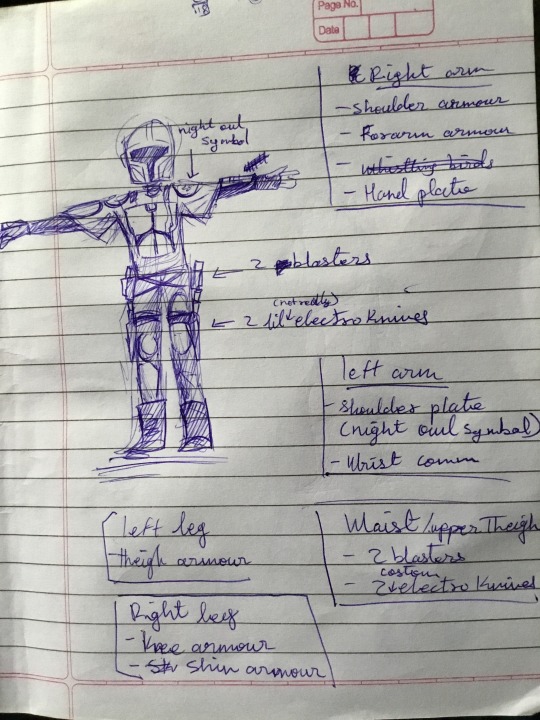 Page No.
Date
Right arm
- shoulder armour
- Forarm armour
- whistling birds
- Hand plate
night owl
symbol
2 blasters
(not really)
2 lil electro Knives
left arm
- Shoulder plate
(night owl symbol)
- Wrist comm
left leg
- Theigh armour
Waist/upper Theigh
- 2 blasters
costom
- 2 electro Knives
Right leg
- Knee armour
- Shin armour